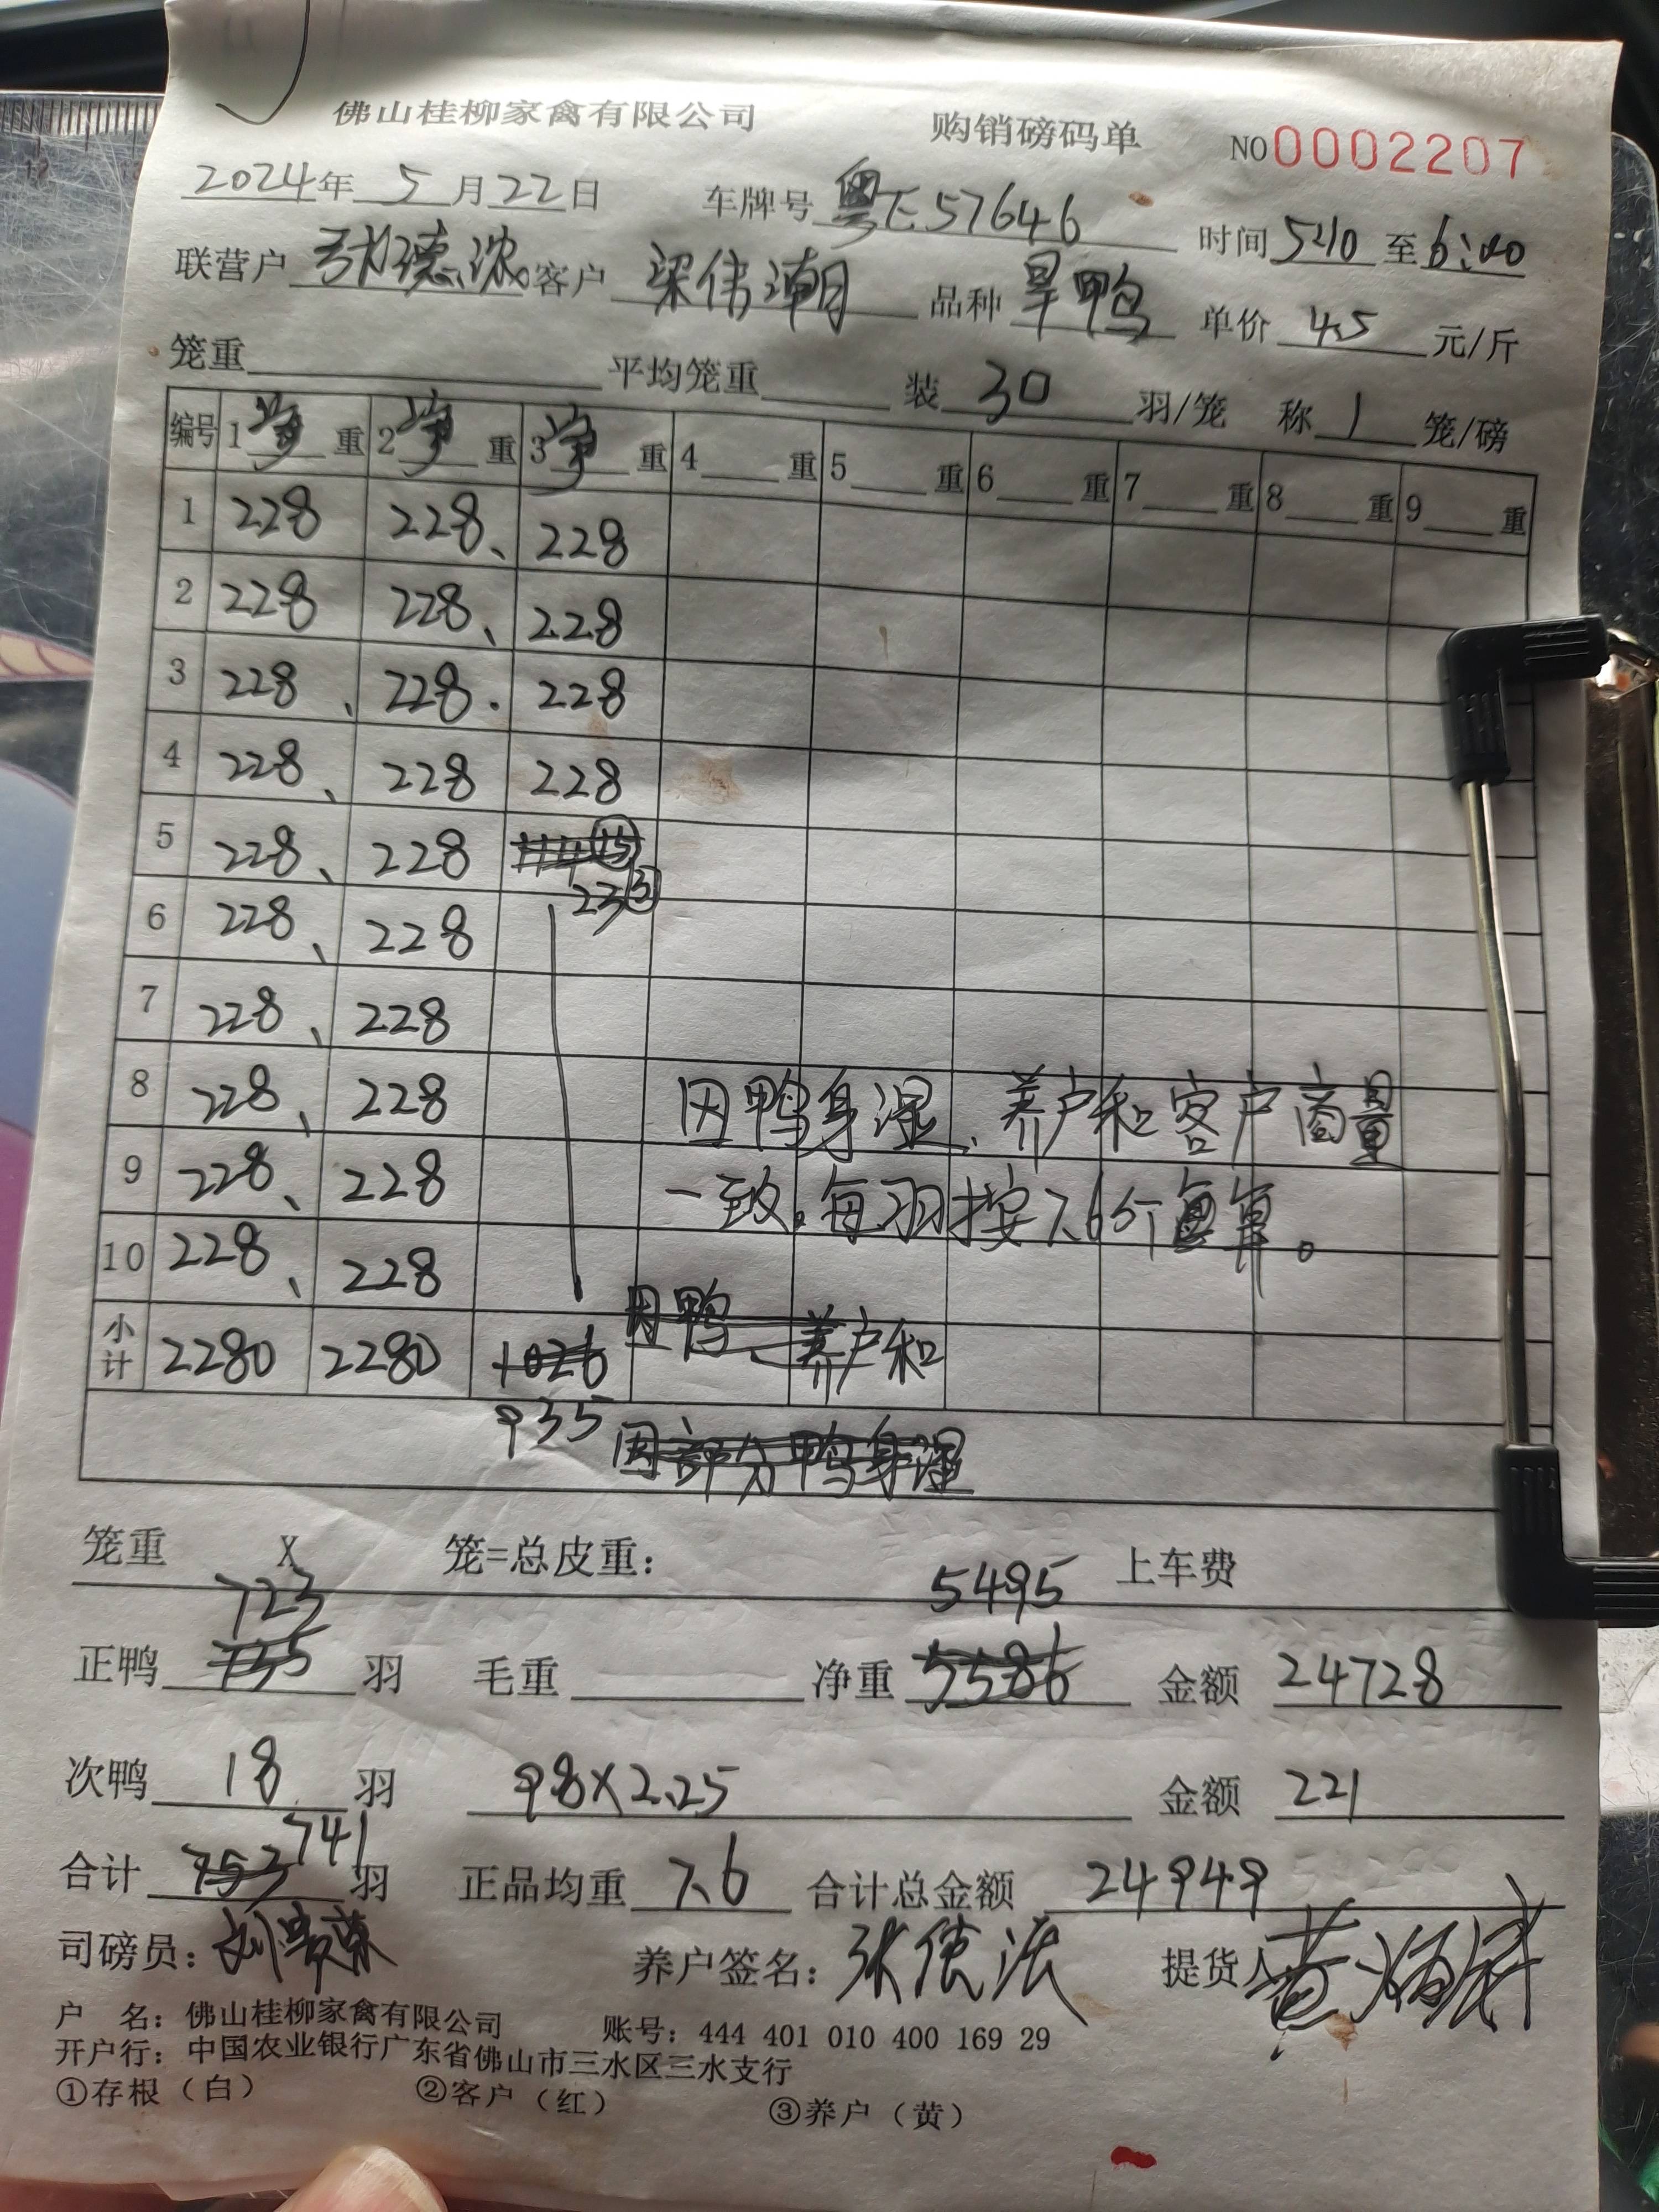 佛山桂柳家禽有限公司 购销磅码单 NO 0002207
2024年 5 月 22 日 车牌号 粤E57646 时间 5:10 至 6:00
联营户 张德浓 客户 梁伟潮 品种 旱鸭 单价 4.5 元/斤
笼重 平均笼重 装 30 羽/笼 称 1 笼/磅
编号 1 净 重 2 净 重 3 净 重 4 重 5 重 6 重 7 重 8 重 9 重
1 228 228、 228
2 228 228、 228
3 228、 228. 228
4 228、 228 228
5 228、 228
23 ③
6 228、 228
7 228、 228
8 228、 228
9 228、 228
10 228、 228
因鸭身湿、养户和客户商量
一致。每羽按7.6斤算。
小计 2280 2280 1026 因鸭、养户和
935 因部分鸭身湿
笼重 X 笼=总皮重: 上车费
723 5495
正鸭 735 羽 毛重 净重 5586 金额 24728
次鸭 18 羽 98X2.25 金额 221
合计 753 741 羽 正品均重 7.6 合计总金额 24949
司磅员: 养户签名: 提货人
户 名: 佛山桂柳家禽有限公司 账号: 444 401 010 400 169 29
开户行: 中国农业银行广东省佛山市三水区三水支行
①存根(白) ②客户(红) ③养户(黄)